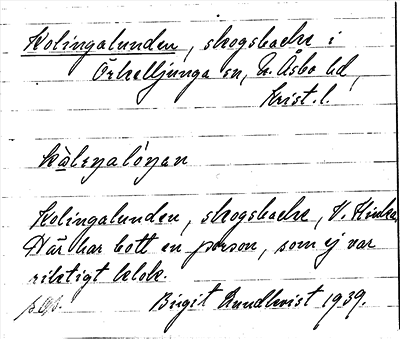 Kolingalunden, skogsbacke i
Örkelljunga sn, N. Åsbo hd,
Krist. l.
Kolingalunden, skogsbacke, V.
Här har bott en person, som ej var
riktigt klok.
Birgit Rundkvist 1939.